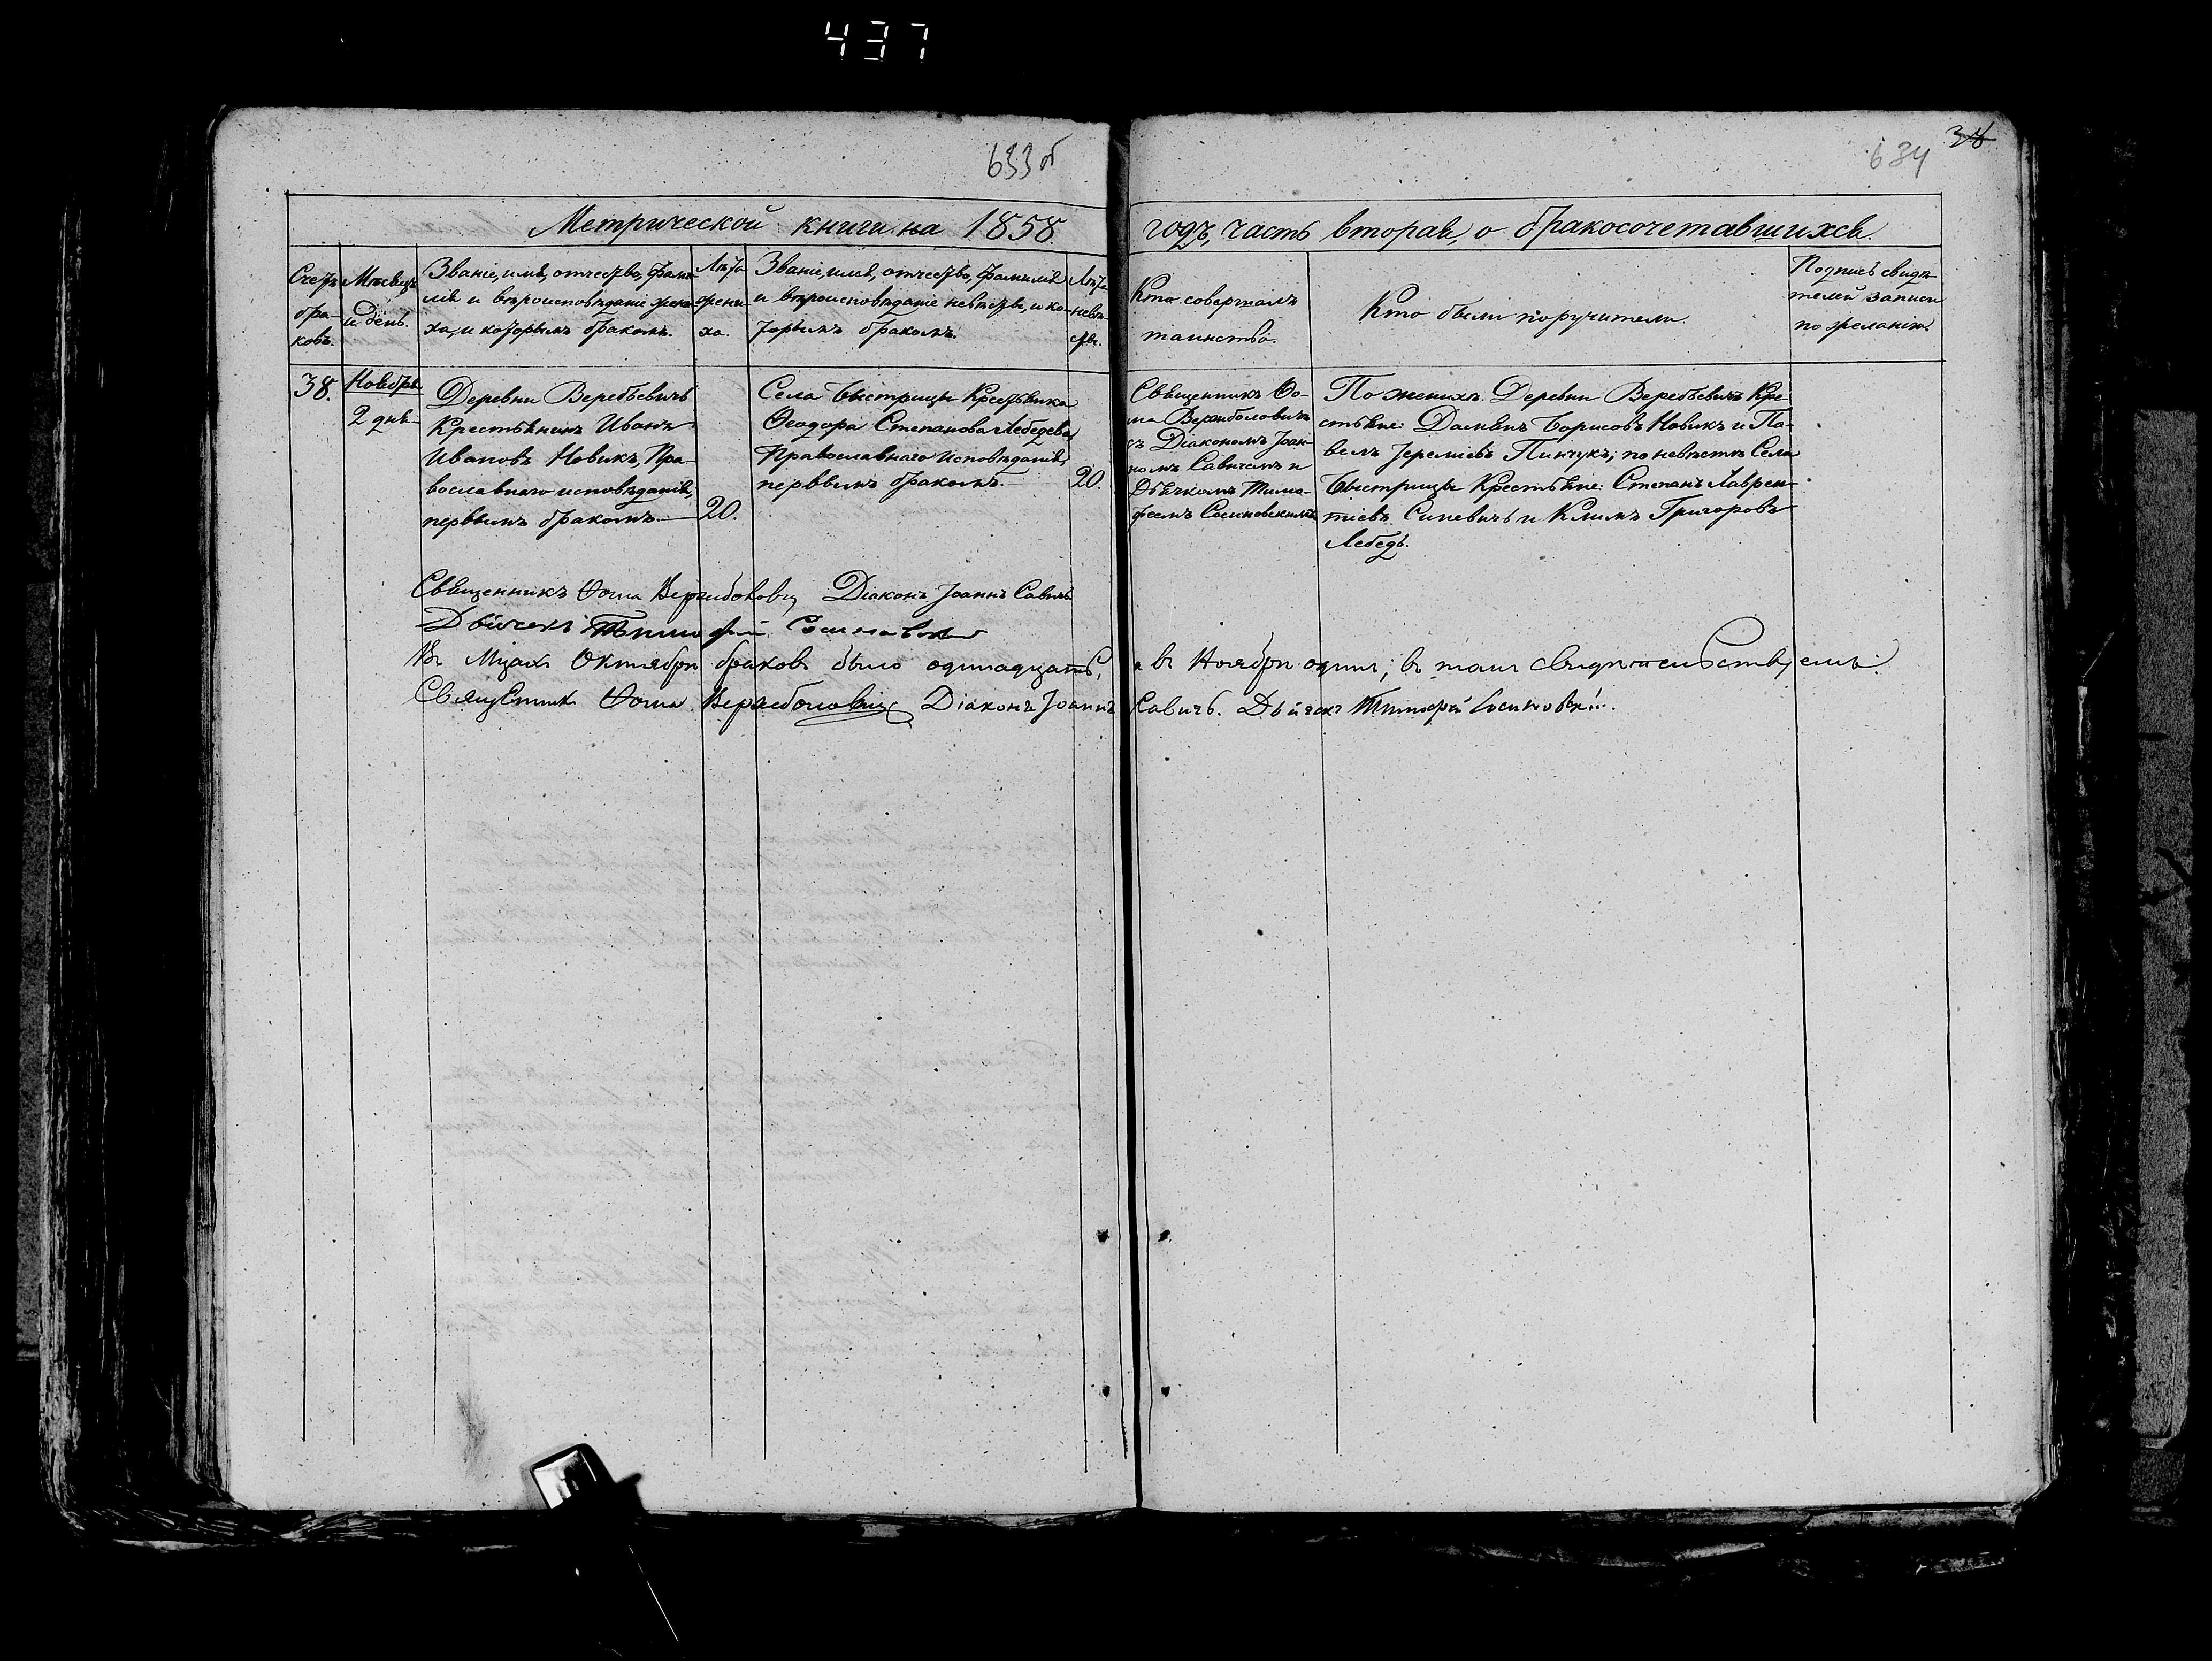 437
633 об
634
38
Метрической книги на 1858
годъ, часть вторая, о бракосочетавшихся.
Счетъ
бра-
ковъ.
Мѣсяцъ
и день.
Званіе, имя, отчество, фами-
лія и вѣроисповѣданіе жени-
ха, и которымъ бракомъ.
Лѣта
жени-
ха.
Званіе, имя, отчество, фамилія
и вѣроисповѣданіе невѣсты, и ко-
торымъ бракомъ.
Лѣта
невѣ-
сты.
Кто совершалъ
таинство.
Кто были поручители.
Подпись свидѣ-
телей записи
по желанію.
38.
Ноября
2 дня
Деревни Веребьевичъ
Крестьянинъ Иванъ
Ивановъ Новикъ, Пра-
вославнаго исповѣданія,
первымъ бракомъ.
20.
Села Быстрицы Крестьянка
Ѳеодора Степанова Лебедева,
Православнаго исповѣданія,
первымъ бракомъ.
20.
Священникъ Ѳо-
ма Вержболовичъ
съ Діакономъ Іоан-
номъ Савичемъ и
Дьячкомъ Тимо-
феемъ Сосиновскимъ
По женихѣ Деревни Веребьевичъ Кре-
стьяне: Дамянъ Борисовъ Новикъ и Па-
велъ Іереміевъ Пинчукъ; по невѣстѣ Села
Быстрицы Крестьяне: Степанъ Лаврен-
тіевъ Синевичъ и Климъ Григоровъ
Лебедь.
Священникъ Ѳома Вержболовичъ Діаконъ Іоаннъ Савичъ
Дьячекъ Тимофей Сосиновскій
Въ Мцахъ Октябри браковъ было одинадцать, а въ Ноябри одинъ; въ томъ свидѣтельствуемъ:
Священникъ Ѳома Вержболовичъ Діаконъ Іоаннъ Савичъ. Дьячекъ Тимофей Сосиновскій.